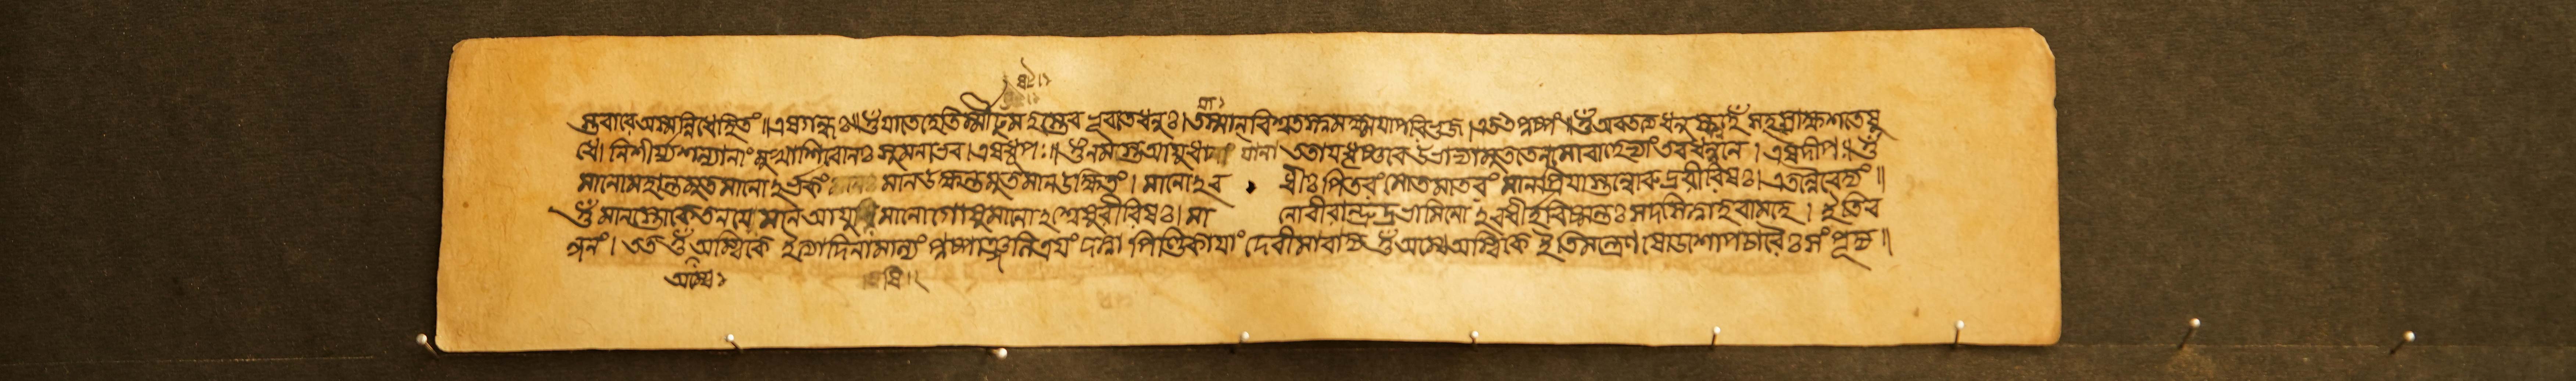 স্তবারে অস্মন্নিধেহিতং ॥ এষ গন্ধঃ ॥ ওঁ যাতে হেতির্ম্মীঢুষ্টম হস্তে বভূব তে ধনুঃ । তয়াস্মান্বিশ্বতস্ত্বমযক্ষ্ময়া পরিভুজ । এতৎ পুষ্পং ॥ ওঁ অবতত্য ধনুষ্ট্বং সহস্রাক্ষ শতেষু
ধে । নিশীর্য্য শল্যানাং মুখা শিবো নঃ সুমনা ভব । এষ ধূপঃ ॥ ওঁ নমস্ত আয়ুধা নাততায় ধৃষ্ণবে উভাভ্যামুত তে নমো বাহুভ্যাং তব ধন্বনে । এষ দীপঃ ॥ ওঁ
মা নো মহান্তমুত মা নো ঽর্ভকং মা ন উক্ষন্তমুত মা ন উক্ষিতং । মা নো ঽব ধীঃ পিতরং মোত মাতরং মা নঃ প্রিয়াস্তন্বো রুদ্র রীরিষঃ । এতন্নৈবেদ্যং ॥
ওঁ মা নস্তোকে তনয়ে মা ন আয়ু মা নো গোষু মা নো ঽশ্বেষু রীরিষঃ । মা নো বীরান্রুদ্র ভামিনো ঽবধীর্হবিষ্মন্তঃ সদমিত্ত্বা হবামহে । ইতি ব
ন্দনং । এত ওঁ অম্বিকে ইত্যাদিনা মাল্যং পুষ্পাঞ্জলিত্রয়ং দত্ত্বা পিণ্ডিকায়াং দেবীমাবাহ্য ওঁ অম্বে অম্বিকে ইতি মন্ত্রেণ ষোড়শোপচারৈঃ সংপূজ্য ॥
অম্বে